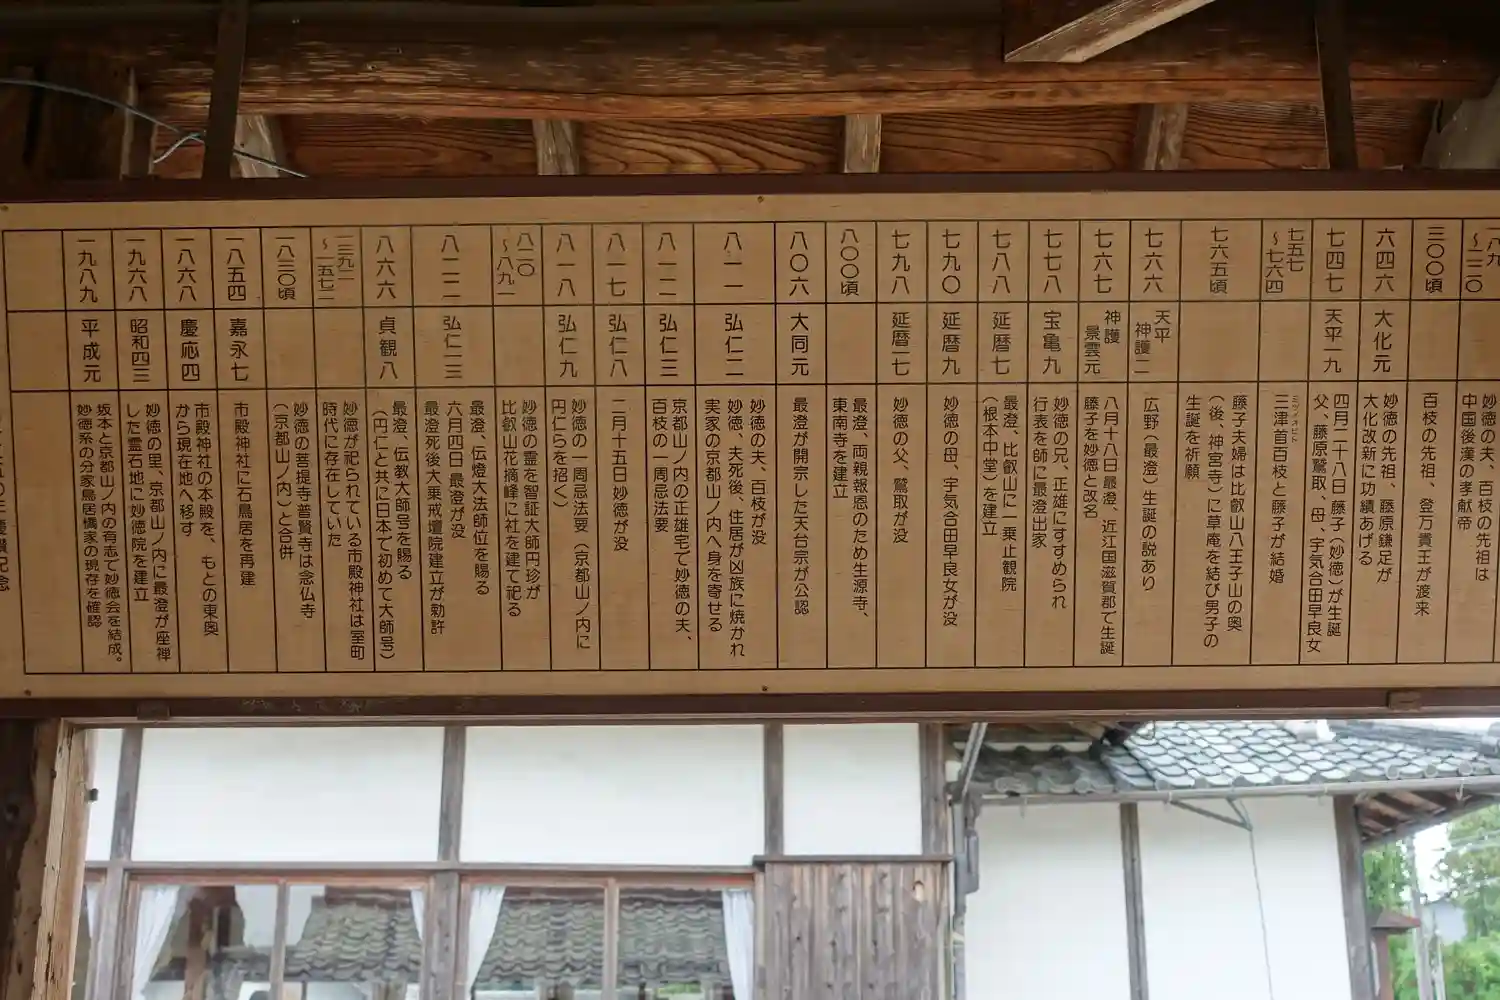 妙徳の夫、百枝の先祖は
中国後漢の孝献帝
三〇〇頃
百枝の先祖、登万貴王が渡来
六四六
大化元
妙徳の先祖、藤原鎌足が
大化改新に功績あげる
七四七
天平一九
四月二十八日 藤子(妙徳)が生誕
父、藤原鷲取、母、宇気合田早良女
七五七
~七六四
三津首百枝と藤子が結婚
七六五頃
藤子夫婦は比叡山八王子山の奥
(後、神宮寺)に草庵を結び男子の
生誕を祈願
七六六
天平
神護二
広野(最澄)生誕の説あり
七六七
神護
景雲元
八月十八日最澄、近江国滋賀郡で生誕
藤子を妙徳と改名
七七八
宝亀九
妙徳の兄、正雄にすすめられ
行表を師に最澄出家
七八八
延暦七
最澄、比叡山に一乗止観院
(根本中堂)を建立
七九〇
延暦九
妙徳の母、宇気合田早良女が没
七九八
延暦一七
妙徳の父、鷲取が没
八〇〇頃
最澄、両親報恩のため生源寺、
東南寺を建立
八〇六
大同元
最澄が開宗した天台宗が公認
八一一
弘仁二
妙徳の夫、百枝が没
妙徳、夫死後、住居が凶族に焼かれ
実家の京都山ノ内へ身を寄せる
八一二
弘仁三
京都山ノ内の正雄宅で妙徳の夫、
百枝の一周忌法要
八一七
弘仁八
二月十五日妙徳が没
八一八
弘仁九
妙徳の一周忌法要(京都山ノ内に
円仁らを招く)
八二〇
~八九一
妙徳の霊を智証大師円珍が
比叡山花摘峰に社を建て祀る
八二二
弘仁一三
最澄、伝燈大法師位を賜る
六月四日 最澄が没
最澄死後大乗戒壇院建立が勅許
八六六
貞観八
最澄、伝教大師号を賜る
(円仁と共に日本で初めて大師号)
一三九二
~一五七二
妙徳が祀られている市殿神社は室町
時代に存在していた
一八三〇頃
妙徳の菩提寺普賢寺は念仏寺
(京都山ノ内)と合併
一八五四
嘉永七
市殿神社に石鳥居を再建
一八六八
慶応四
市殿神社の本殿を、もとの東奥
から現在地へ移す
一九六八
昭和四三
妙徳の里、京都山ノ内に最澄が座禅
した霊石地に妙徳院を建立
一九八九
平成元
坂本と京都山ノ内の有志で妙徳会を結成。
妙徳系の分家鳥居橋家の現存を確認